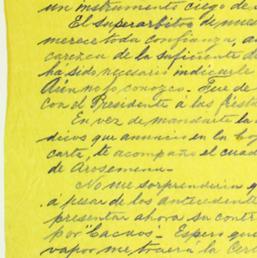 un instrumento ciego de
El superarbitro de nues
merece toda confianza, a
carezca de la suficiente d
ha sido necesario indicarle
Aún no lo conozco. Fue de
con el Presidente a las fiesta
En vez de mandarte la
dicos que anuncio en la Co
carta, te acompaño el cuad
de Arosemena.
No me sorprenderia q
á pesar de los antecedente
presentar ahora su contr
por "Cacaos". Espero que
vapor me traerá la Cer